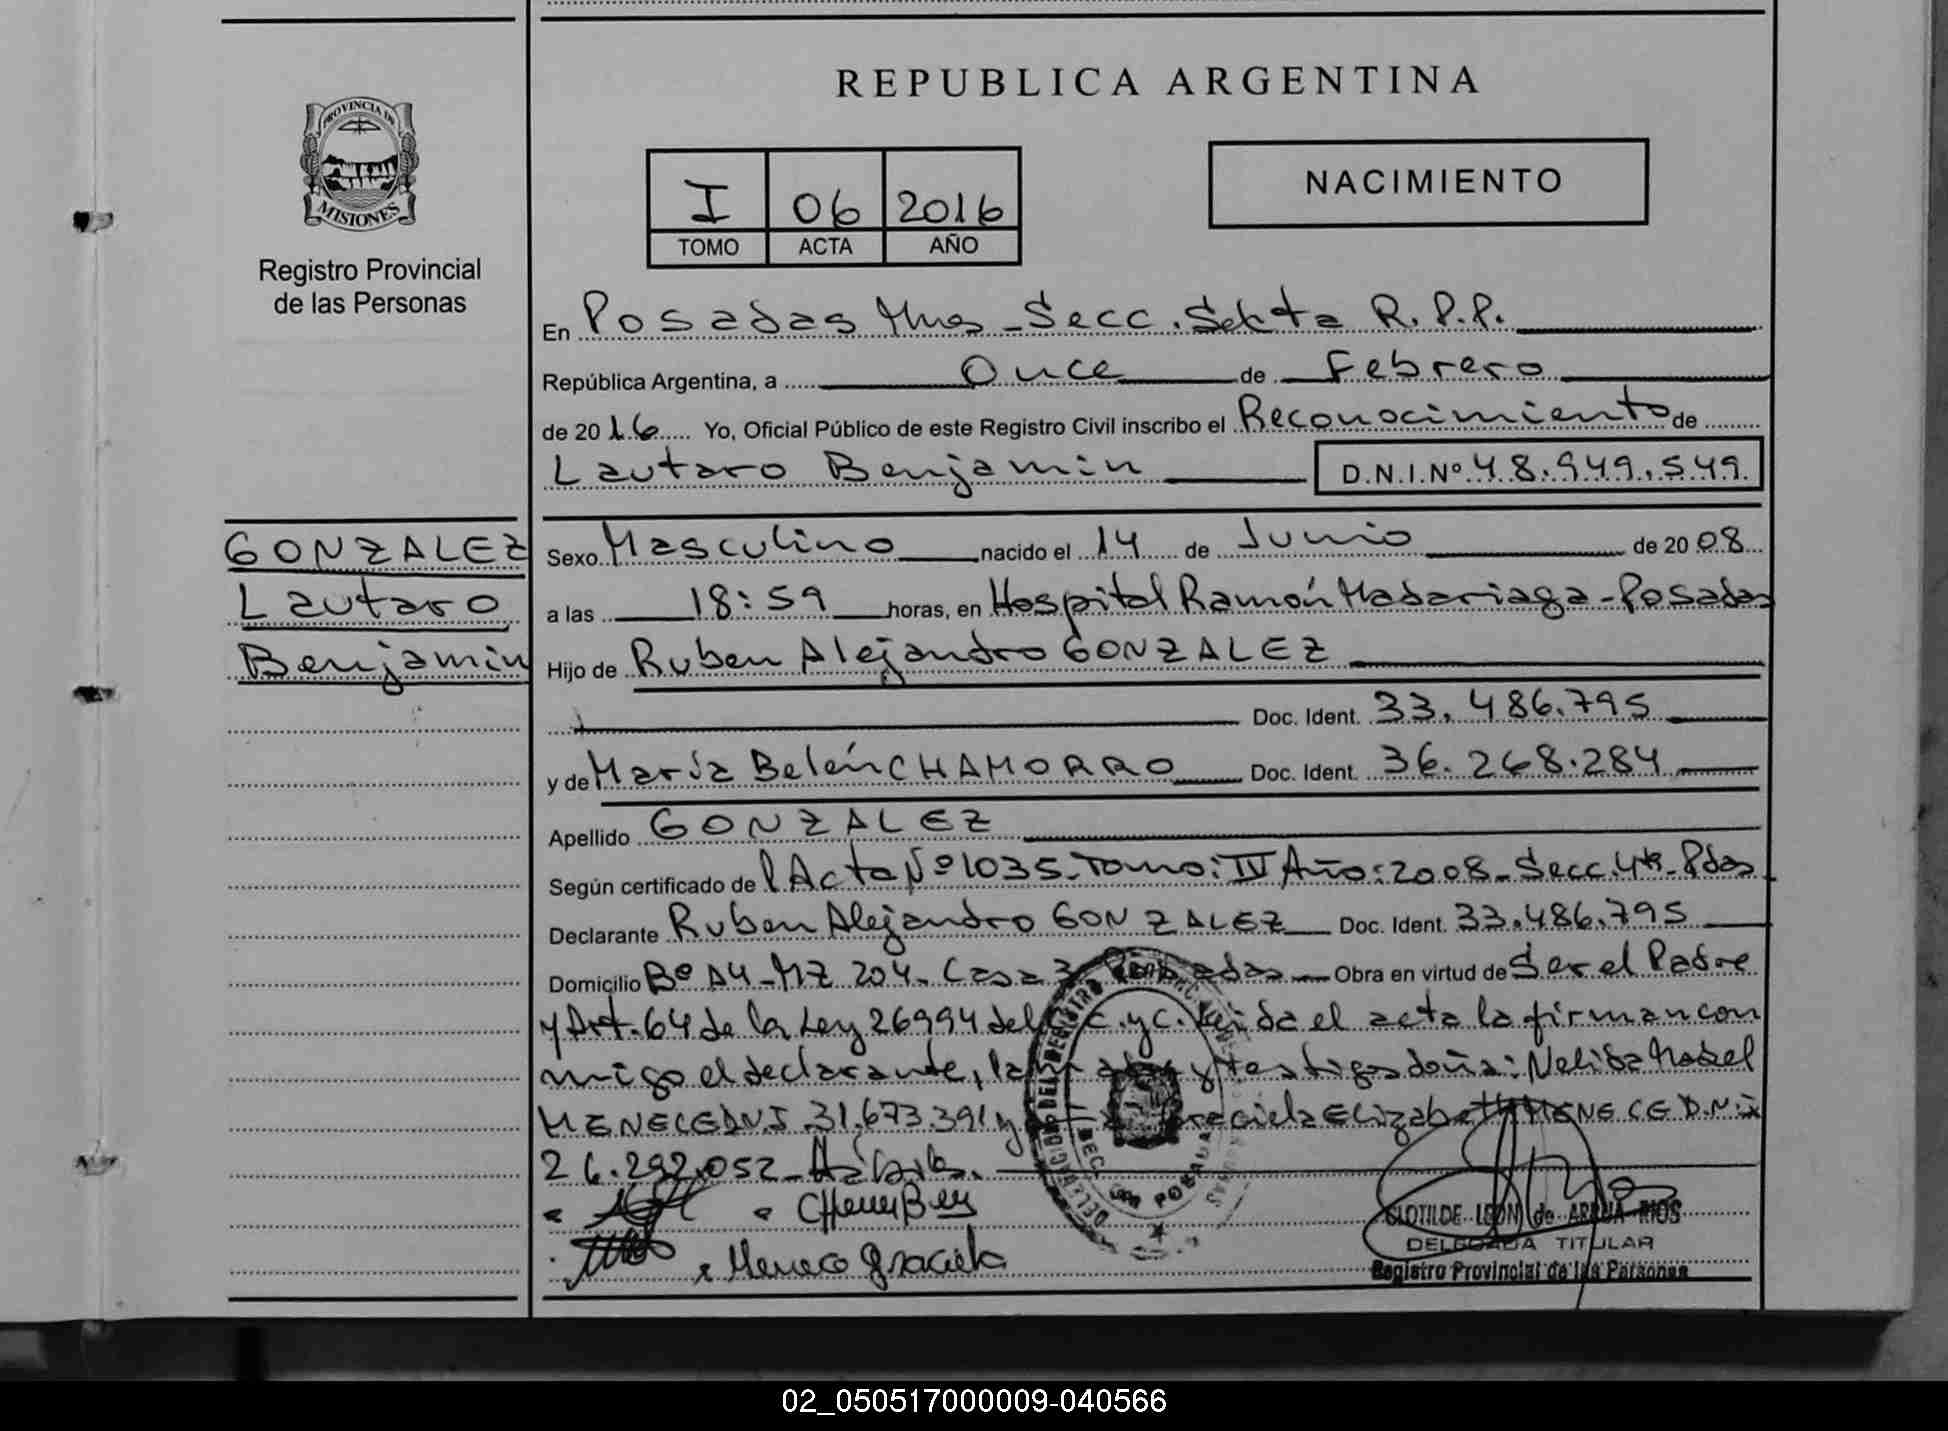 REPUBLICA ARGENTINA
PROVINCIA DE
MISIONES
Registro Provincial
de las Personas
I 06 2016
TOMO ACTA AÑO
NACIMIENTO
En Posadas Mnes - Secc. Sexta R.P.P.
República Argentina, a Once de Febrero
de 2016 Yo, Oficial Público de este Registro Civil inscribo el Reconocimiento de
Lautaro Benjamin D.N.I.Nº 48.949.549
GONZALEZ
Lautaro
Benjamin
Sexo Masculino nacido el 14 de Junio de 2008
a las 18:59 horas, en Hospital Ramón Madariaga - Posadas
Hijo de Ruben Alejandro GONZALEZ
Doc. Ident. 33.486.795
y de María Belén CHAMORRO Doc. Ident. 36.268.284
Apellido GONZALEZ
Según certificado de Acta Nº 1035 - Tomo: IV Año: 2008 - Secc. 4ta - Pdas
Declarante Ruben Alejandro GONZALEZ Doc. Ident. 33.486.795
Domicilio Bº A4 - MZ 204 - Casa 3 Posadas Obra en virtud de Ser el Padre
y Art. 64 de la Ley 26994 del C. y C. Leida el acta la firman con
migo el declarante, la madre y testigos doña: Nelida Mabel
MENECE D.N.I. 31.673.391 y Graciela Elizabeth MENECE D.N.I.
26.292.052
Menece Graciela
CLOTILDE LEON de ARRUA RIOS
DELEGADA TITULAR
Registro Provincial de las Personas
02_050517000009-040566